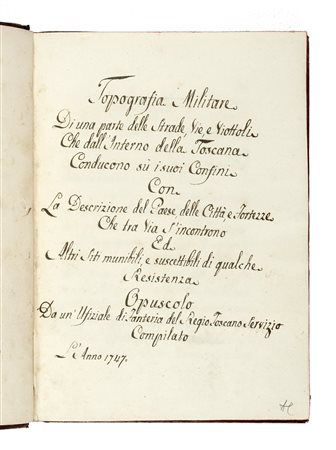 Topografia Militare
Di una parte delle Strade, Vie, e Viottoli
Che dall'Interno della Toscana
Conducono sù i suoi Confini
Con
La Descrizione del Paese delle Città, e Fortezze
Che tra Via S'incontrono
Ed
Altri Siti munibili, e suscettibili di qualche
Resistenza
Opuscolo
Da un' Ufiziale di Fanteria del Regio Toscano Servizio
Compilato
L'Anno 1747.